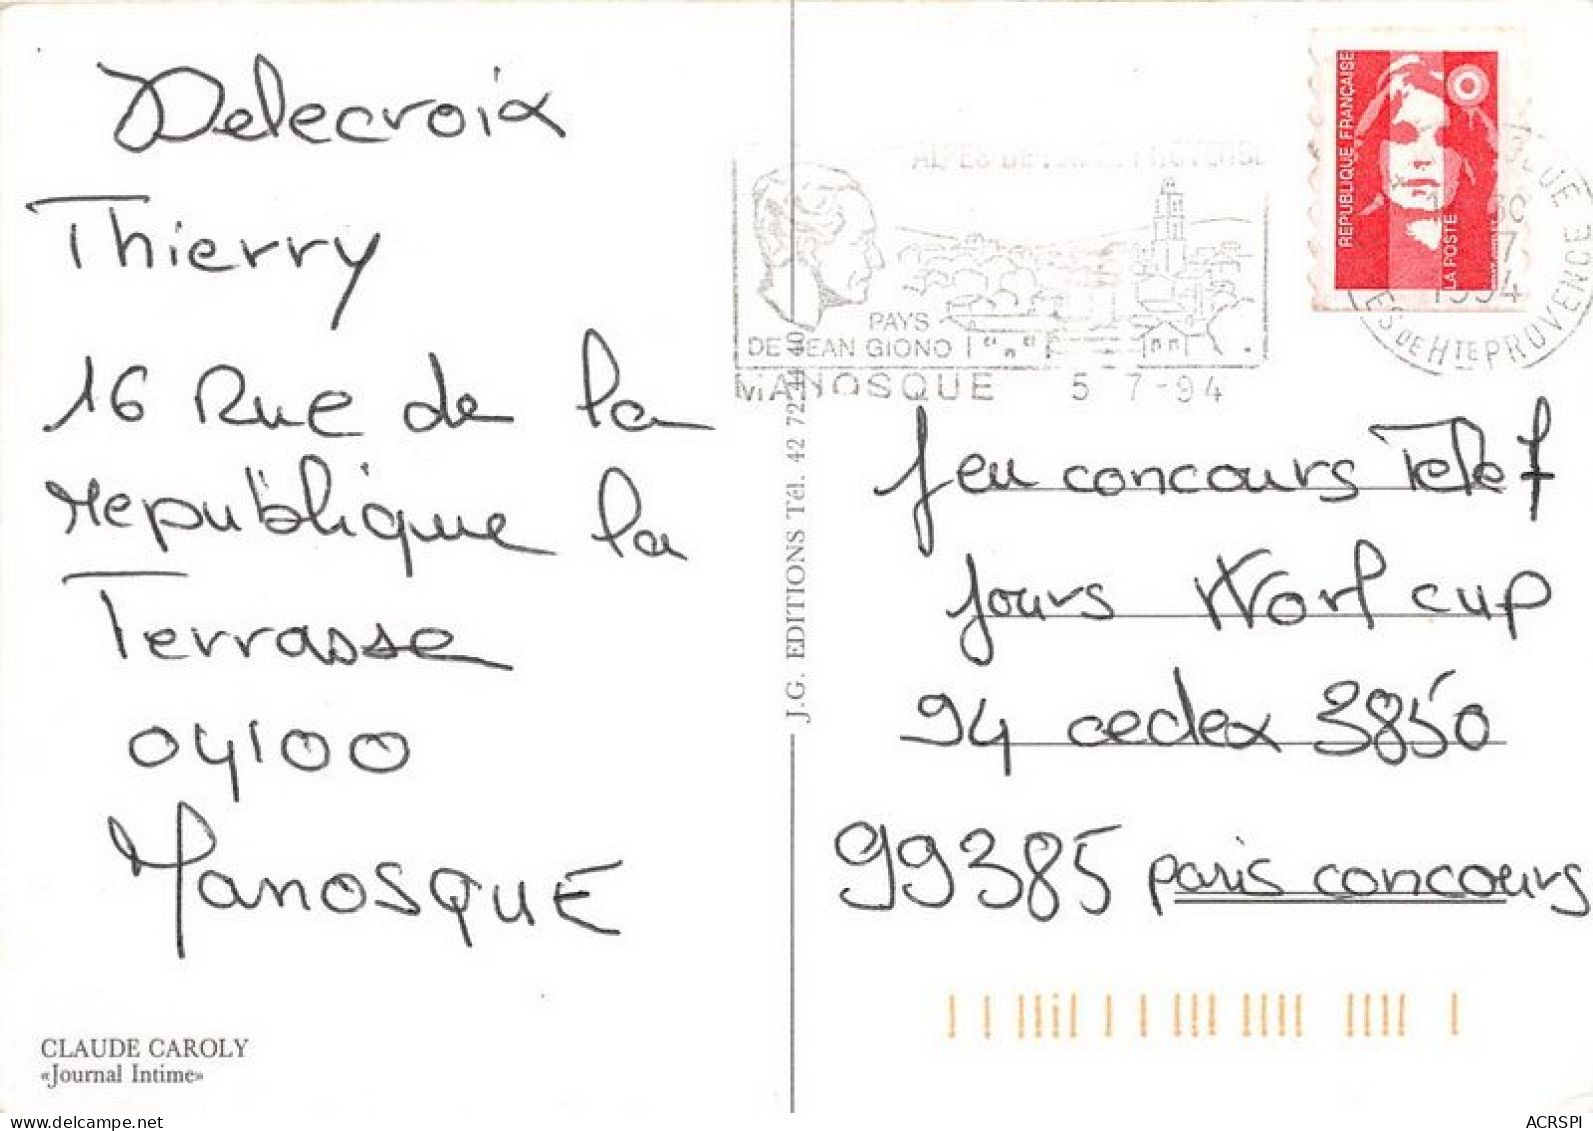 Delecroix
Thierry
16 Rue de la
republique la
Terrasse
04100
MANOSQUE
CLAUDE CAROLY
«Journal Intime»
J.G. EDITIONS Tél. 42 72 14 40
ALPES DE HAUTE PROVENCE
PAYS
DE JEAN GIONO
MANOSQUE 5 7-94
REPUBLIQUE FRANÇAISE
LA POSTE
MANOSQUE
1994
ES DE HTE PROVENCE
Jeu concours Tele 7
jours Worl cup
94 cedex 3850
99385 paris concours
www.delcampe.net
ACRSPI